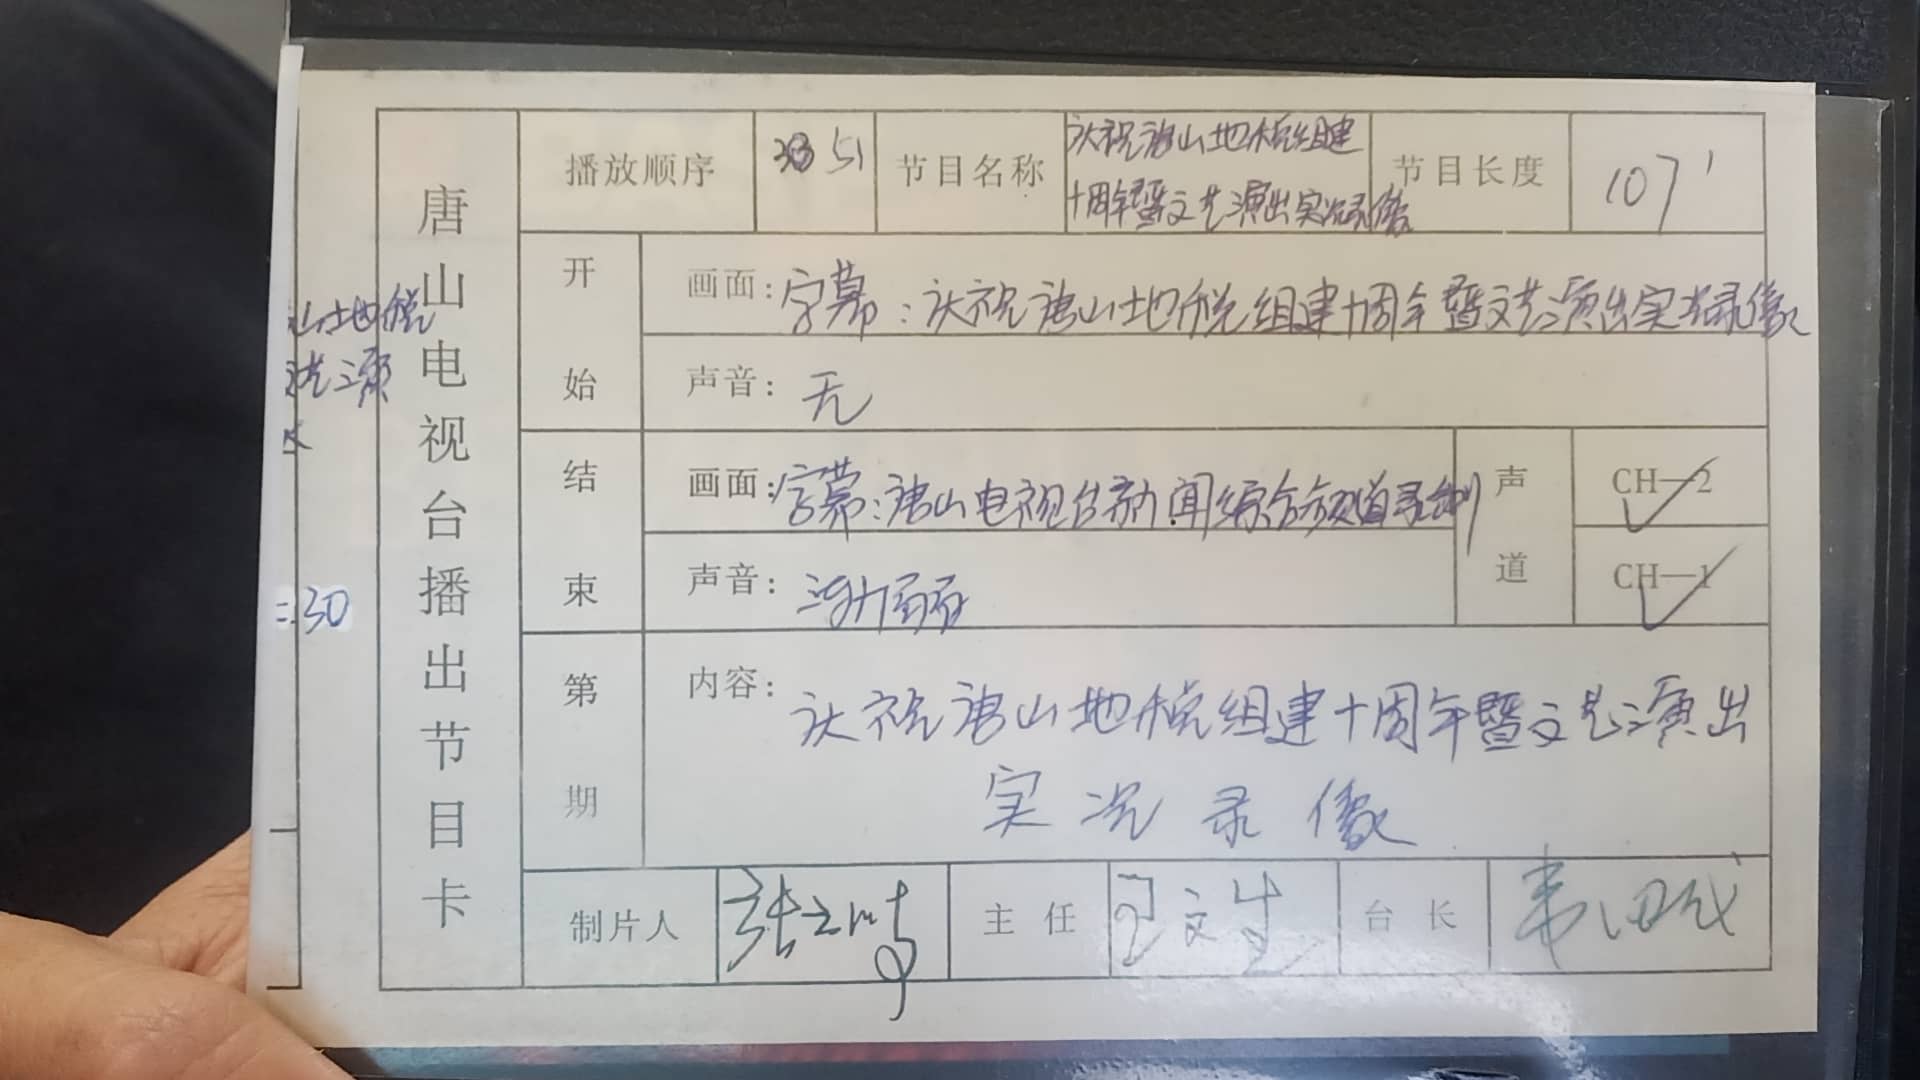 唐山电视台播出节目卡
播放顺序 51 节目名称 庆祝唐山地税组建 节目长度 107'
十周年暨文艺演出实况录像
开始
画面：字幕：庆祝唐山地税组建十周年暨文艺演出实况录像
声音：无
结束
画面：字幕：唐山电视台新闻综合频道录制
声音：渐弱
声道
CH—2
CH—1
第期
内容：庆祝唐山地税组建十周年暨文艺演出
实况录像
制片人 主任 王文生 台长
山地税
文艺演
:30